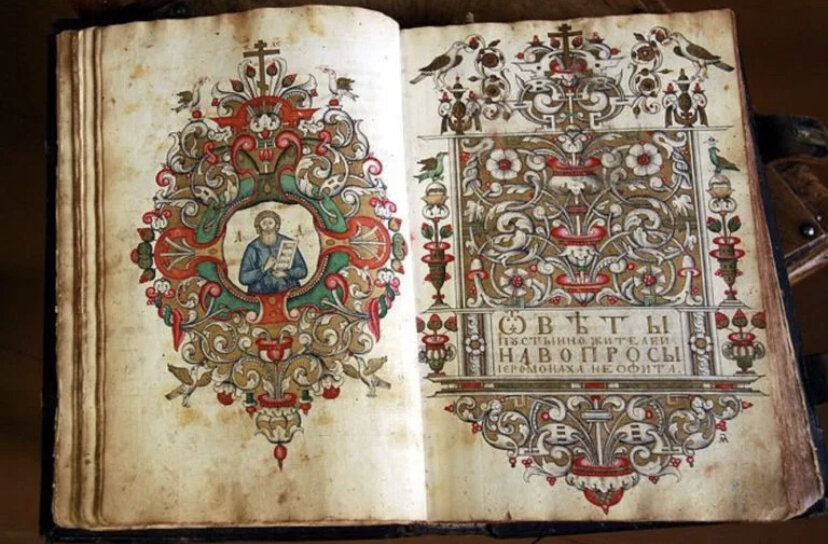 ѾВѢТЫ
ПꙊСТЫННОЖИТЕЛЕЙ
НАВОПРОСЫ
ІЕРОМОНАХА НЕОФИТА.